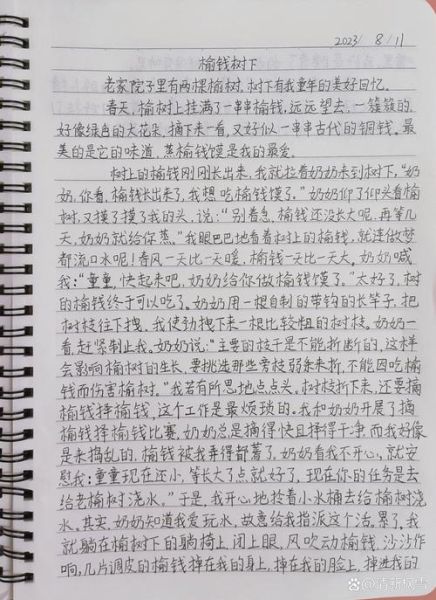 2023/ 8/11
榆钱树下
老家院子里有两棵榆树,树下有我童年的美好回忆。
春天,榆树上挂满了一串串榆钱,远远望去,一簇簇的
好像绿色的大花朵,摘下来一看,又好似一串串古代的铜钱。最
美的是它的味道,蒸榆钱馍是我的最爱。
树上的榆钱刚刚长出来,我就拉着奶奶来到树下,“奶
奶,你看,榆钱长出来了,我想吃榆钱馍了。”奶奶仰了仰头看榆
树,又摸了摸我的头,说:“别着急,榆钱还没长大呢,再等几
天,奶奶就给你蒸。”我眼巴巴地看着树上的榆钱,就连做梦
都流口水呢!春风一天比一天暖,榆钱一天比一天大,奶奶喊
我:“童童,快起来吧,奶奶给你做榆钱馍了。”太好了,树
的榆钱终于可以吃了。奶奶用一根自制的带钩的长竿子,把
树枝往下拽,我使劲拽下来一根比较粗的树枝。奶奶一
看,赶紧制止我。奶奶说:“主要的枝干是不能折断的,这样
会影响榆树的生长,要挑选那些旁枝弱条来折,不能因吃榆
钱而伤害榆树。”我若有所思地点点头。树枝折下来,还要摘
榆钱择榆钱,这个工作是最烦琐的。我和奶奶开展了摘
榆钱择榆钱比赛,奶奶总是摘得快且择得干净,而我好像
是来捣乱的,榆钱被我弄得都蔫了,奶奶看我不开心,就安
慰我:童童现在还小,等长大了点就好了,现在你的任务是去
给老榆树浇水。”于是,我开心地拎着小水桶去给榆树浇
水。其实,奶奶知道我爱玩水,故意给我指派这个活。累了,我
就躺在榆树下的躺椅上,闭上眼,风吹动榆钱,沙沙作
响,几片调皮的榆钱掉在我的身上,掉在我的脸上,掉进我的